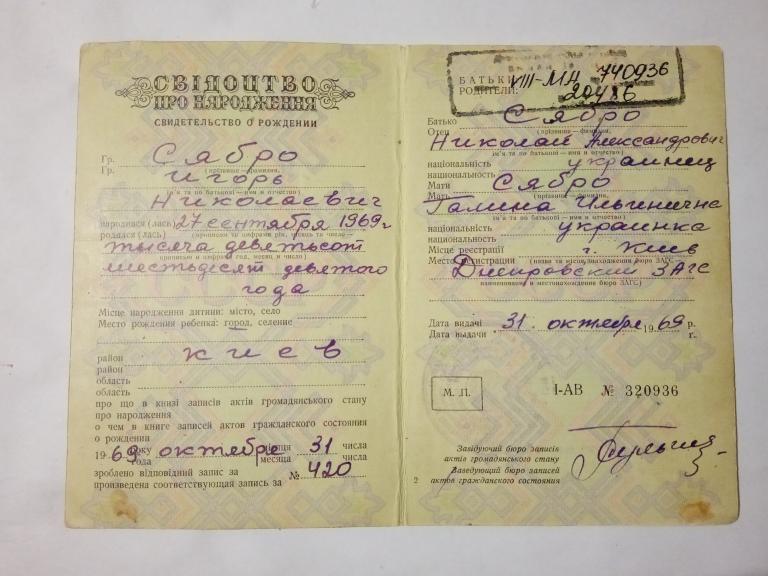 СВІДОЦТВО
ПРО НАРОДЖЕННЯ
СВИДЕТЕЛЬСТВО О РОЖДЕНИИ
Гр. Сябро
Гр. (прізвище — фамилия,
Игорь
Николаевич
(ім'я та по батькові — имя и отчество)
народився (лась) 27 сентября 1969 г
родился (лась) (прописом и цифрами рік, місяць та число —
тысяча девятьсот
прописью и цифрами год, месяц и число)
шестьдесят девятого
года
Місце народження дитини: місто, село
Место рождения ребенка: город, селение
киев
район
район
область
область
про що в книзі записів актів громадянського стану
про народження
о чем в книге записей актов гражданского состояния
о рождении
1969 року октябре місяця 31 числа
года месяца числа
зроблено відповідний запис за № 420
произведена соответствующая запись за
БАТЬКИ VIII-МН 740936
РОДИТЕЛИ:
Батько Сябро
Отец (прізвище — фамилия,
Николай Александрович
ім'я та по батькові — имя и отчество)
національність украинец
национальность
Мати Сябро
Мать (прізвище — фамилия,
Галина Ильинична
ім'я та по батькові — имя и отчество)
національність украинка
национальность
Місце реєстрації г. Киев
Место регистрации (назва та місцезнаходження бюро ЗАГС
Днепровский ЗАГС
наименование и местонахождение бюро ЗАГС)
Дата видачі 31 октября 1969 р.
Дата выдачи г.
М. П. I-АВ № 320936
Завідуючий бюро записів
актів громадянського стану
Заведующий бюро записей
2 актов гражданского состояния